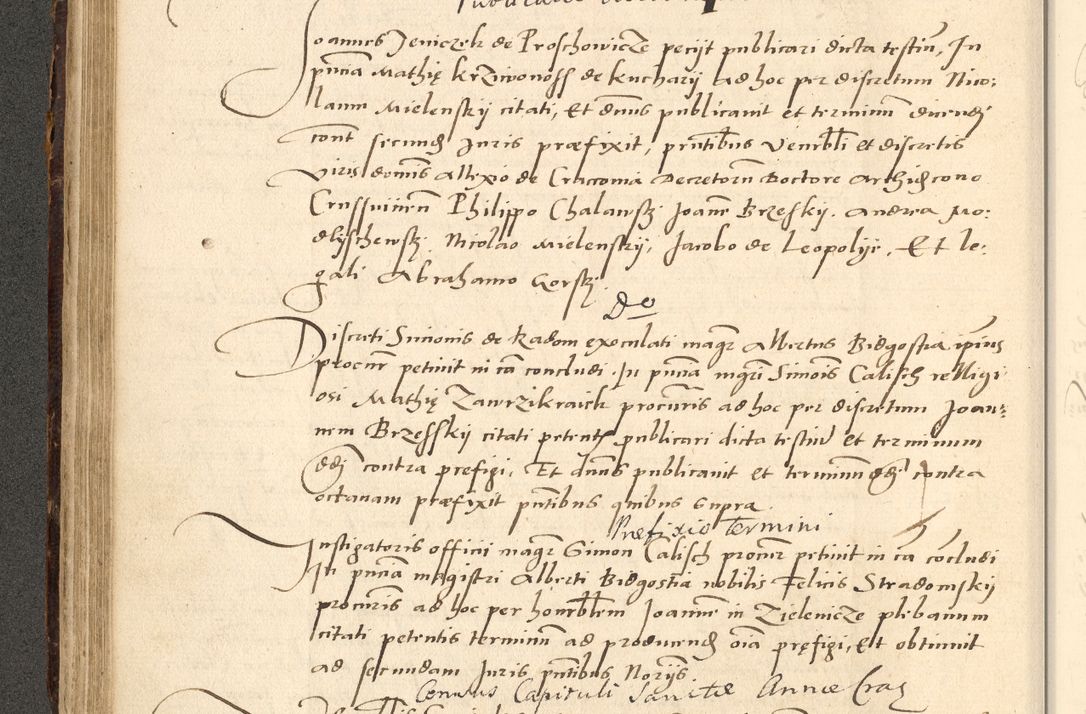 Joannes Jeniczek de Proschowicze pecijt publicari dicta testiu, In
pntia Mathię krziwonoss de kucharij ad hoc per discretum Nico:
laum Mielenskij citati, Et dnus publicauit et terminum ducendj
cont secundj Juris præfixit, pntibus Venerbli et discretis
viris dominis Allexio de Craccouia Decretorum Doctore Archidcono
Philippo Chalawskj Joanne Brzeskij. Andrea Mo:
dlyschewskj Nicolao Mielenskij, Jacobo de Leopolij, Et le:
gali Abrahamo Gorskj.
Do
Discreti Simonis de Radom exoculati magr Albertus Bidgostia ipius
procur petiuit in ca concludi. In pntia mgri Simonis Calisch relligi
osi Mathię Zawrzikraick procuris ad hoc per discretum Joan:
nem Brzesskij citati petente publicari dicta testiu et terminum
ddj contra prefigi, Et dnus publicauit et terminum ddj contra
octauam præfixit pntibus quibus supra
Prefixio Termini
Instigatoris officii magr Simon Calisch procur petiuit in ca cocludi
In pntia magistri Alberti Bidgostia nobilis Felicis Stradomskij
procuris ad hoc per honorblem Joannem in Zielenicze plebanum
citati petentis terminum ad producendj oia pręfigi, Et obtinuit
ad secundam Juris pntibus Norijs.
Census Capituli Sanctæ Annæ Crac